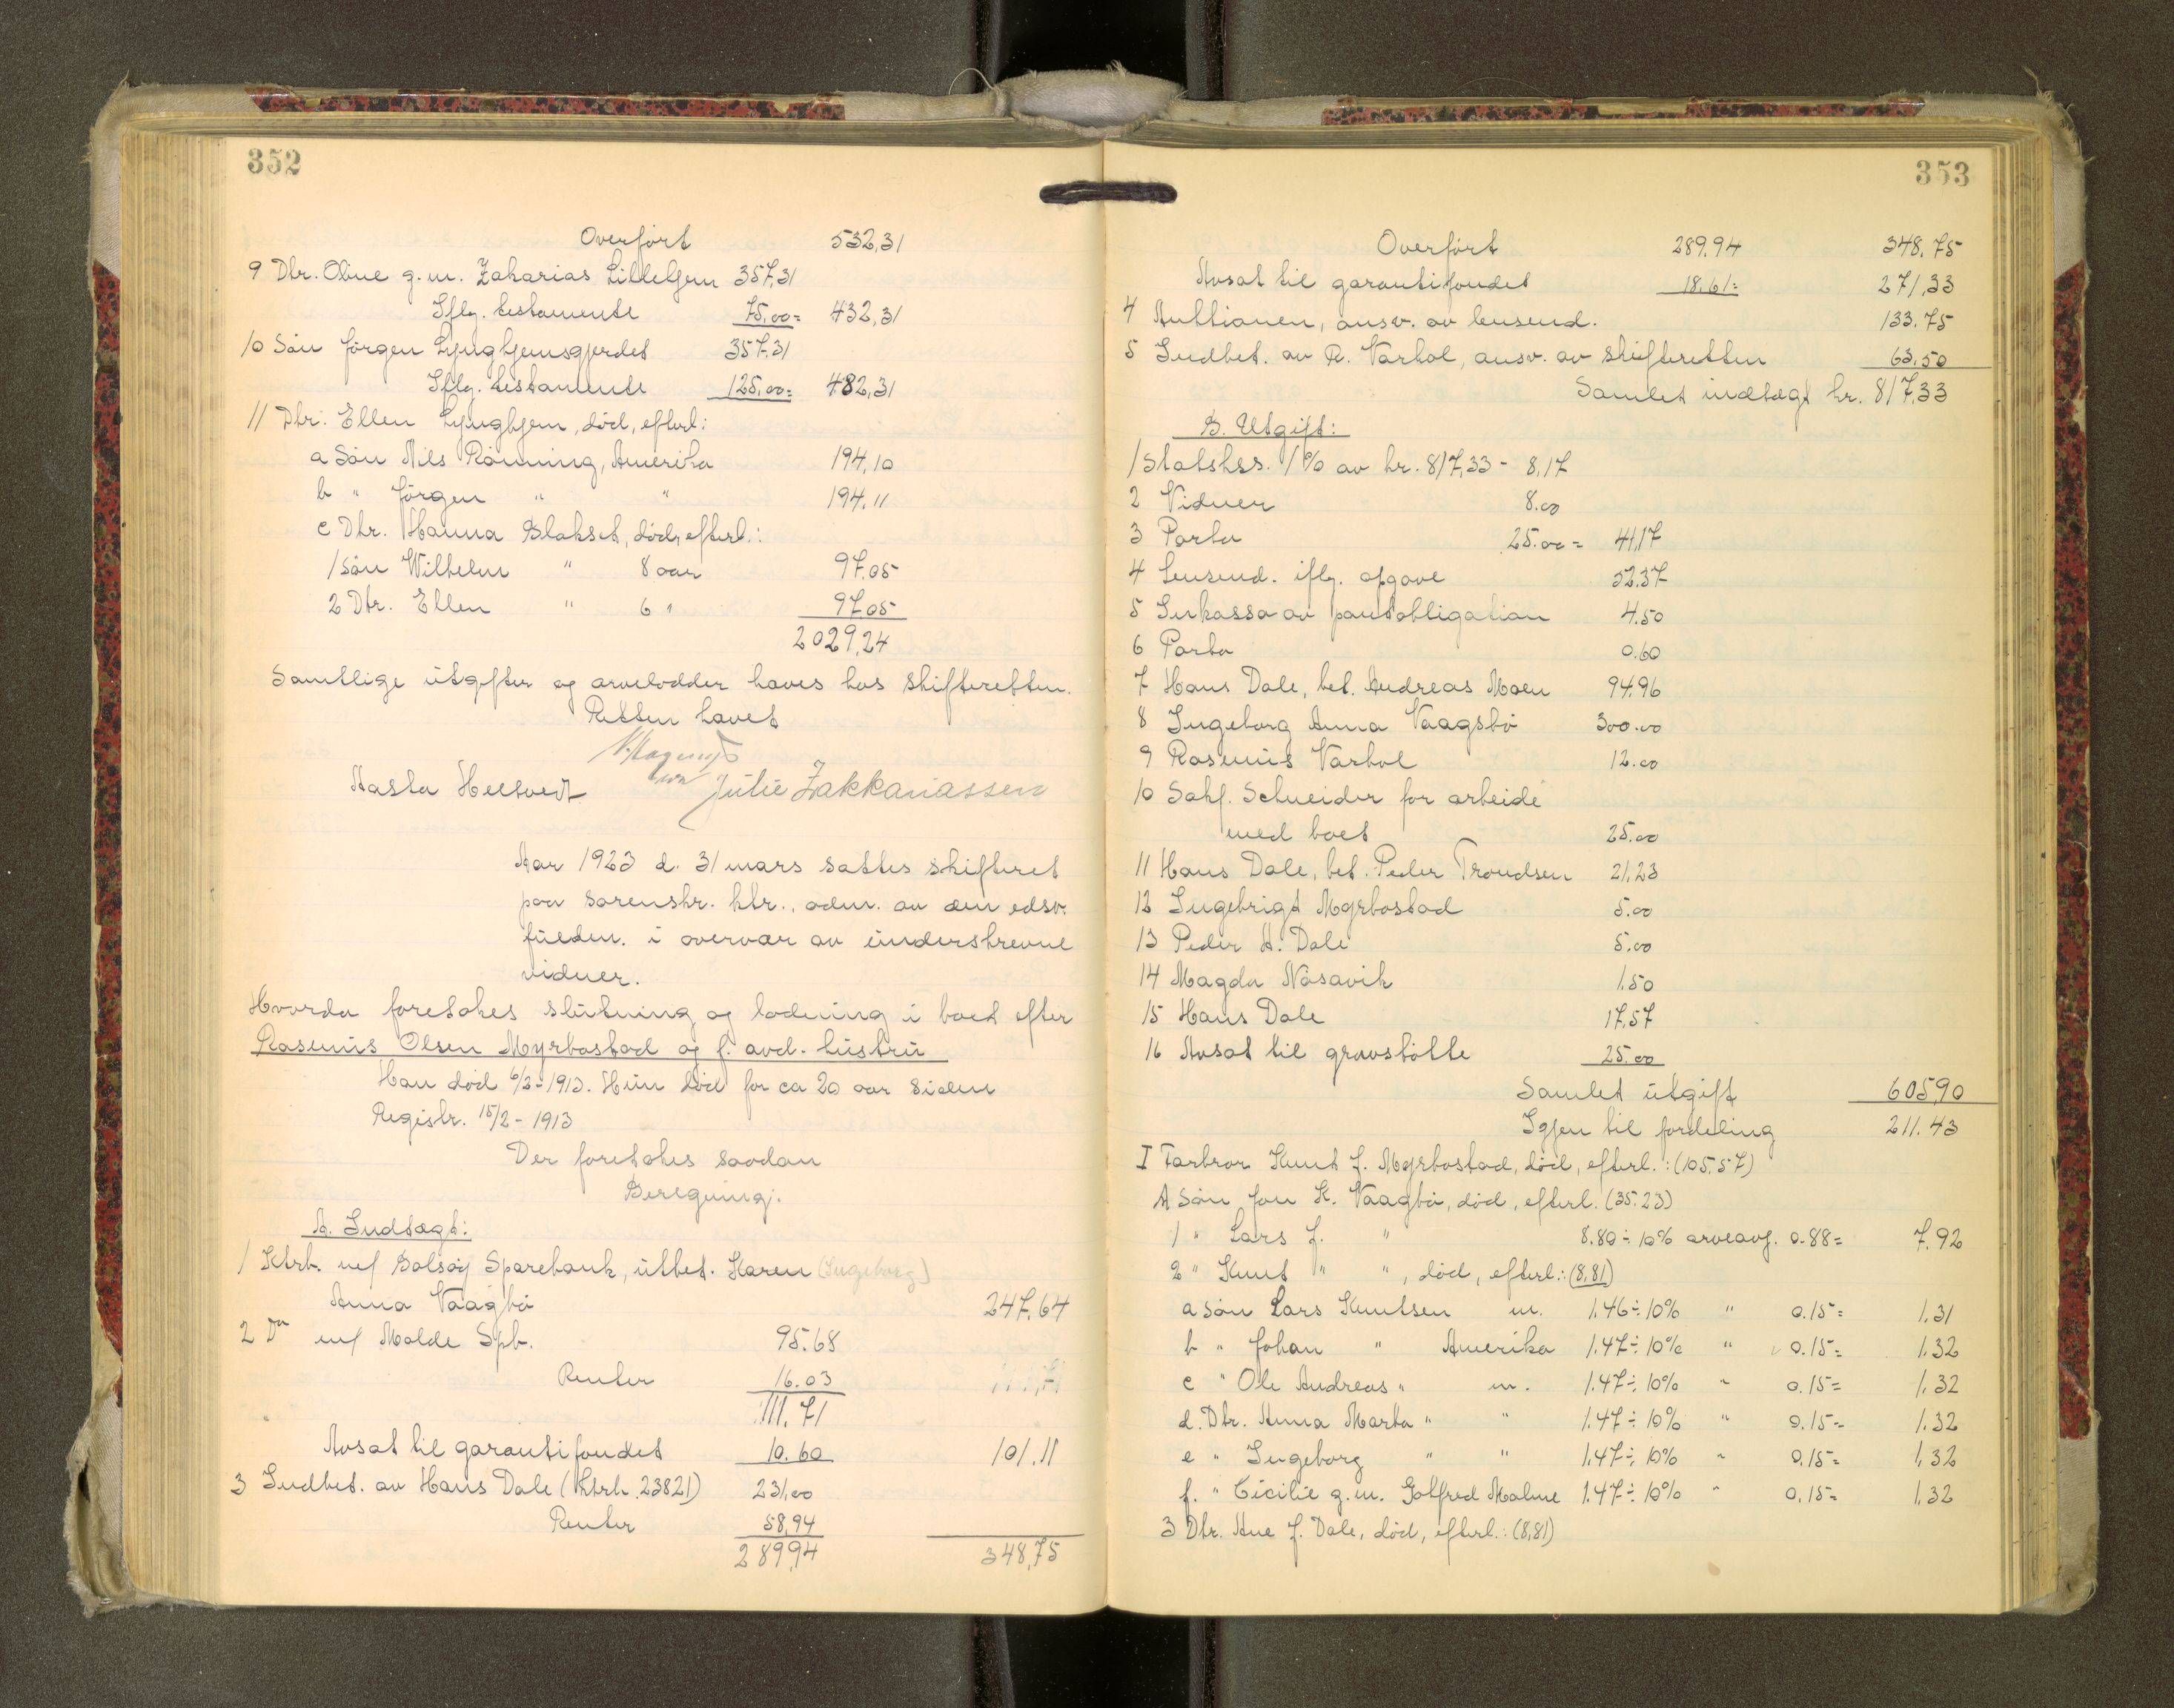 352
Overfört 532,31
9 Dtr. Oline g.m. Zakarias Lillehjem 357,31
Iflg. testamente 75,00= 432,31
10 Sön Jörgen Lynghjemsgjerdet 357,31
Iflg. testamente 125,00= 482,31
11 Dtr. Ellen Lynghjem, död, efterl:
a Sön Nils Rönning, Amerika 194,10
b " Jörgen " " 194,11
c Dtr. Hanna Blakset, död, efterl.:
1 Sön Wilhelm " 8 aar 97,05
2 Dtr. Ellen " 6 " 97,05
2029,24
Samtlige utgifter og arvelodder haves hos skifteretten.
Retten hævet
Aasta Heltvedt Julie Zakkariassen
Aar 1923 d. 31 mars sattes skifteret
paa sorenskr. ktr., adm. av den edsv.
fuldm. i overvær av underskrevne
vidner.
Hvorda foretokes slutning og lodning i boet efter
Rasmus Olsen Myrbostad og f. avd. hustru
Han död 6/2-1913. Hun död for ca 20 aar siden
Registr. 15/2-1913
Der foretokes saadan
Beregning:
A. Indtægt:
1 Ktrb. ved Bolsöy Sparebank, utbet. Karen (Ingeborg)
Anna Vaagbö 247,64
2 Do ved Molde Spb. 95.68
Renter 16.03
111.71
Avsat til garantifondet 10.60 101.11
3 Indbet. av Hans Dale (Ktrb. 23821) 231,00
Renter 58,94
289,94 348,75
353
Overfört 289.94 348,75
Avsat til garantifondet 18.61= 271,33
4 Auktionen, ansv. av lensmd. 133.75
5 Indbet. av R. Varhol, ansv. av skifteretten 63,50
Samlet indtægt kr. 817,33
B. Utgift:
1 Statskss. 1% av kr. 817,33 - 8,17
2 Vidner 8.00
3 Porto 25.00= 41,17
4 Lensmd. iflg. opgave 52,37
5 Inkasso av pantobligation 4.50
6 Porto 0.60
7 Hans Dale, bet. Andreas Moen 94,96
8 Ingeborg Anna Vaagsbö 300.00
9 Rasmus Varhol 12.00
10 Sakf. Schneider for arbeide
med boet 25.00
11 Hans Dale, bet. Peder Trondsen 21,23
12 Ingebrigt Myrbostad 5.00
13 Peder H. Dale 5.00
14 Magda Nösavik 1.50
15 Hans Dale 17,57
16 Avsat til gravstötte 25.00
Samlet utgift 605,90
Igjen til fordeling 211.43
I Farbror Knut J. Myrbostad, död, efterl.: (105.57)
A Sön Jon K. Vaagbö, död, efterl. (35.23)
1 " Lars J. " 8.80 ÷ 10% arveavg. 0.88= 7.92
2 " Knut " ", död, efterl.: (8,81)
a Sön Lars Knutsen m. 1.46 ÷ 10% " 0.15= 1.31
b " Johan " Amerika 1.47 ÷ 10% " 0.15= 1.32
c " Ole Andreas " m. 1.47 ÷ 10% " 0.15= 1.32
d. Dtr. Anna Marta " " 1.47 ÷ 10% " 0.15= 1.32
e " Ingeborg " " 1.47 ÷ 10% " 0.15= 1.32
f. " Cicilie g.m. Gotfred Malme 1.47 ÷ 10% " 0.15= 1.32
3 Dtr. Ane J. Dale, död, efterl.: (8,81)